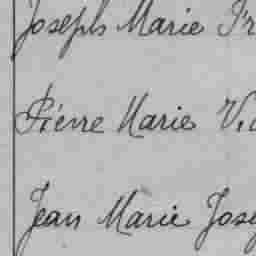 Joseph Marie Fr
Pierre Marie Vic
Jean Marie Jose